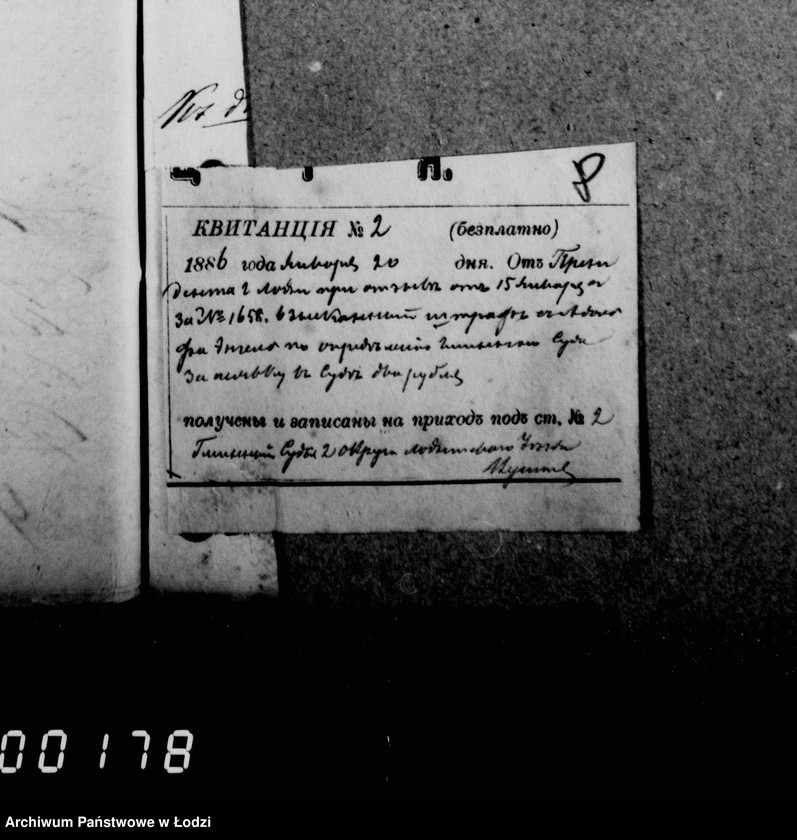 Къ д
8
КВИТАНЦІЯ № 2 (безплатно)
1886 года Января 20 дня. Отъ Прези
дента г Лодзи при отзывѣ отъ 15 Января
за № 1658. взысканный штрафъ съ
по опредѣленію Гминнаго Суда
за неявку въ Судъ два рубля
получены и записаны на приходъ подъ ст. № 2
Гминный Судья 2 округа Лодзинскаго Уѣзда
00178
Archiwum Państwowe w Łodzi